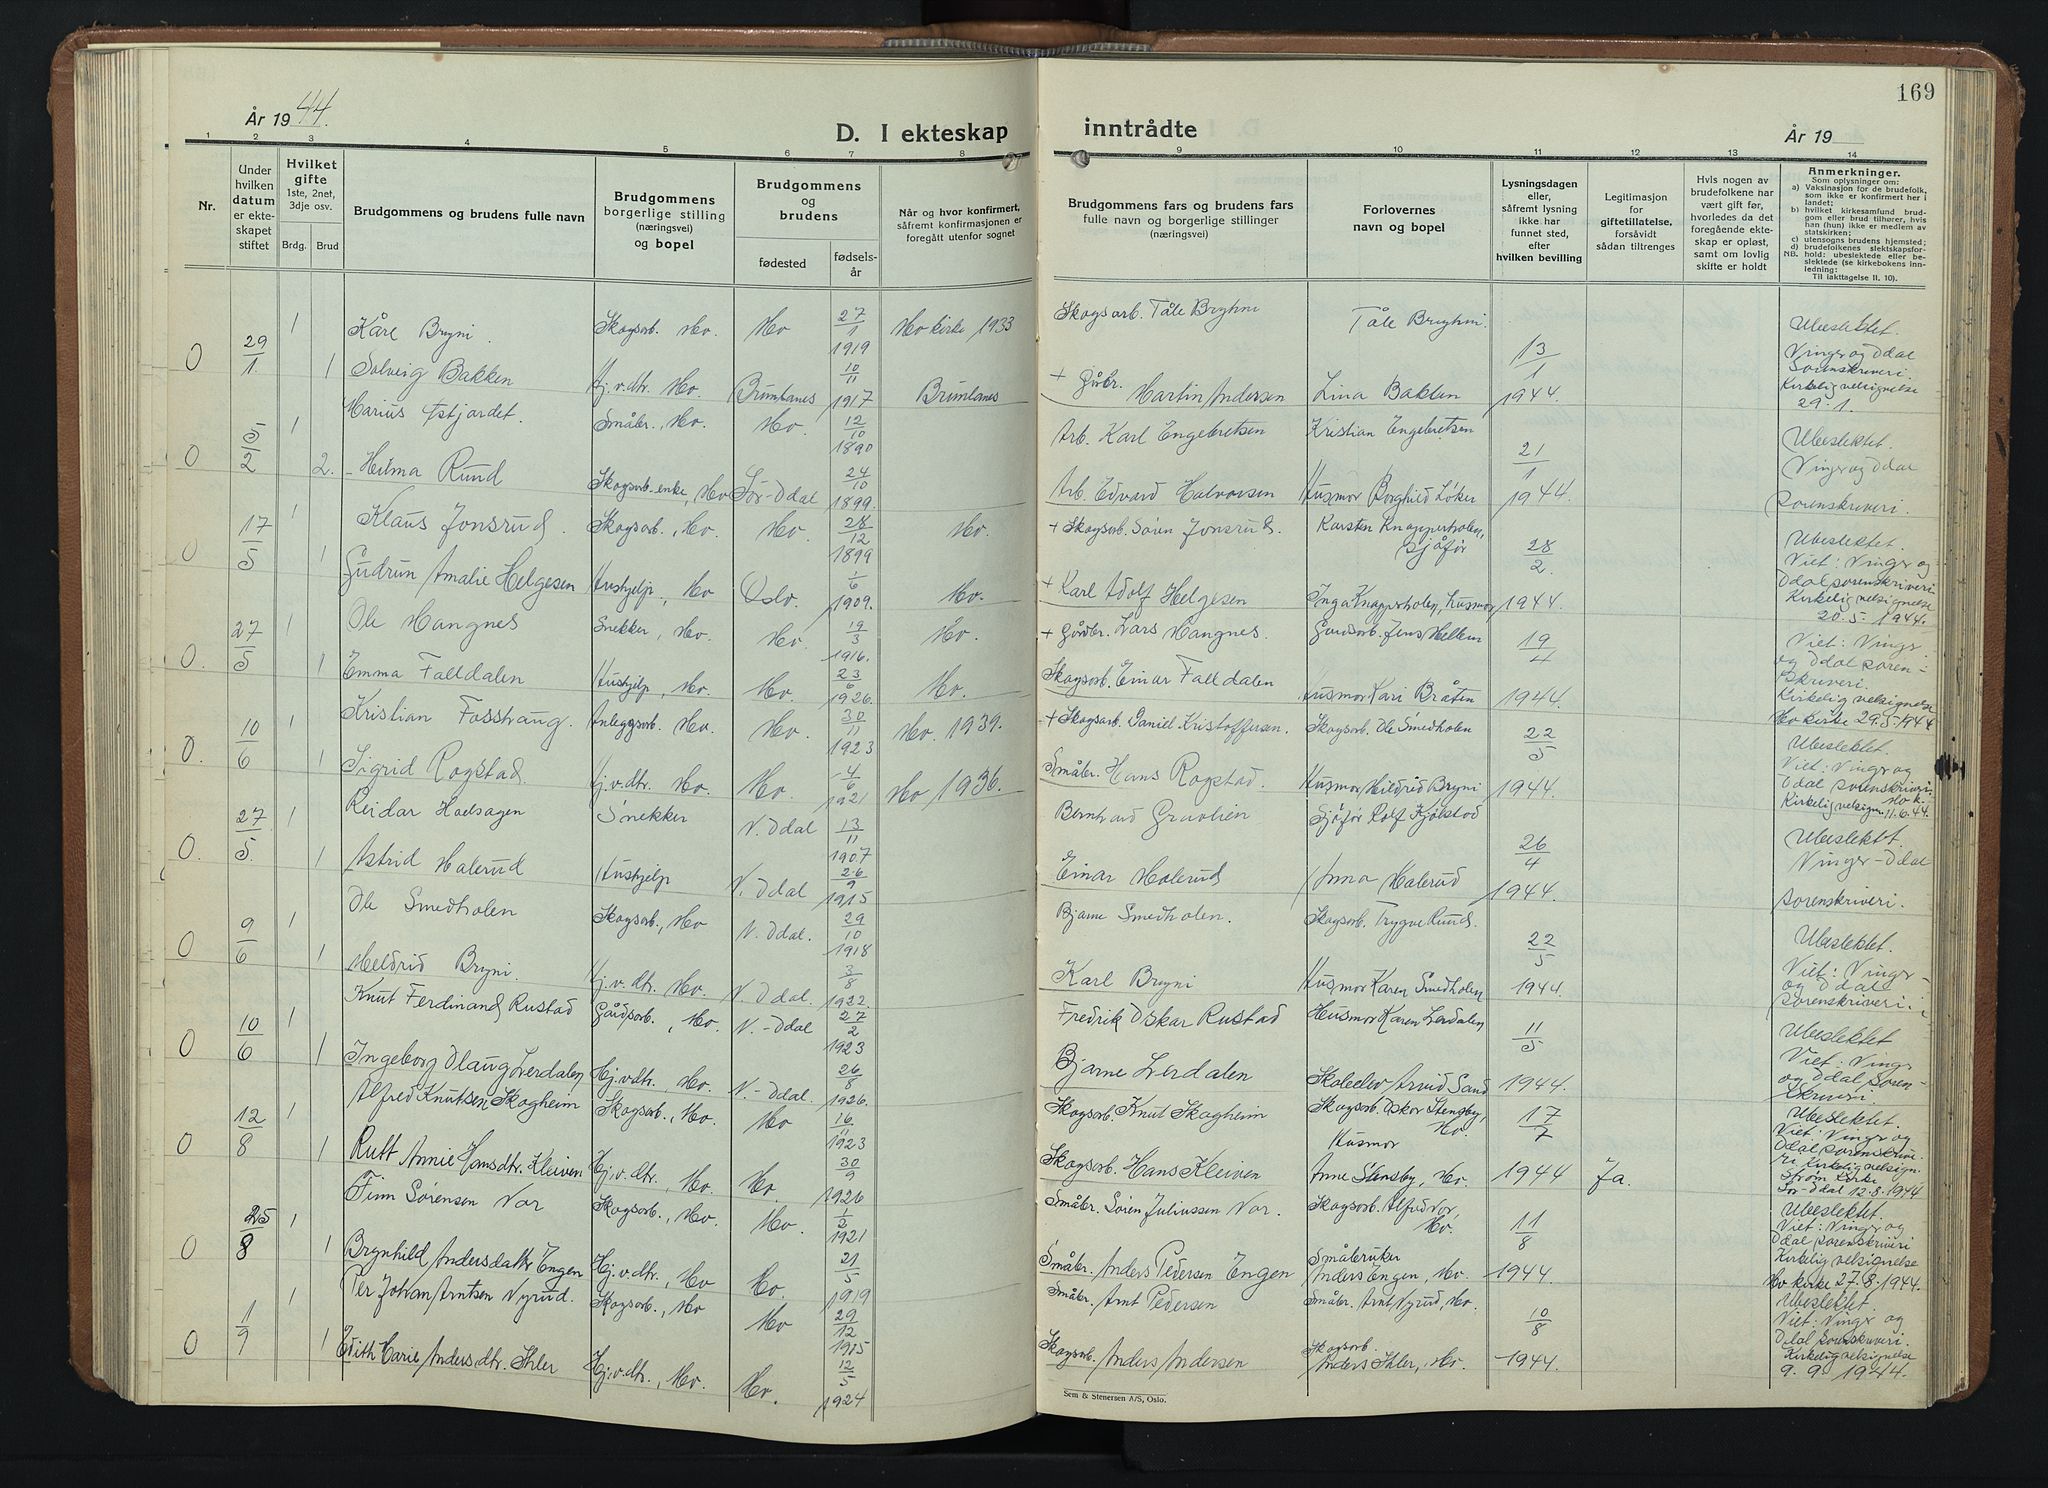 169
År 1944.
D. I ekteskap inntrådte
År 19
1 2 3 4 5 6 7 8 9 10 11 12 13 14
Nr.
Under hvilken datum er ekteskapet stiftet
Hvilket gifte 1ste, 2net, 3dje osv.
Brdg. Brud
Brudgommens og brudens fulle navn
Brudgommens borgerlige stilling (næringsvei) og bopel
Brudgommens og brudens
fødested
fødselsår
Når og hvor konfirmert, såfremt konfirmasjonen er foregått utenfor sognet
Brudgommens fars og brudens fars fulle navn og borgerlige stillinger (næringsvei)
Forlovernes navn og bopel
Lysningsdagen eller, såfremt lysning ikke har funnet sted, efter hvilken bevilling
Legitimasjon for giftetillatelse, forsåvidt sådan tiltrenges
Hvis nogen av brudefolkene har vært gift før, hvorledes da det foregående ekteskap er opløst, samt om lovlig skifte er holdt
Anmerkninger.
Som oplysninger om:
a) Vaksinasjon for de brudefolk, som ikke er konfirmert her i landet;
b) hvilket kirkesamfund brudgom eller brud tilhører, hvis han (hun) ikke er medlem av statskirken;
c) utensogns brudens hjemsted;
d) brudefolkenes slektskapsforhold: ubeslektede eller beslektede (se kirkebokens innledning:
NB. Til iakttagelse II. 10).
0 29/1 1 Kåre Bryni. Skogsarb. Mo. Mo 27/1 1919 Mo kirke 1933 Skogsarb. Tåle Bryhni Tåle Bryhni. 13/1 1944. Ubeslektet.
1 Solveig Bakken Hj.v.dtr. Mo. Brumlanes 10/11 1917 Brumlanes + Gårbr. Martin Andersen Lina Bakken Vinger og Odal Sorenskriveri. Kirkelig velsignelse 29.1.
0 5/2 1 Marius Østjordet. Småbr., Mo. Mo. 12/10 1890 Arb. Karl Engebretsen Kristian Engebretsen 21/1 1944. Ubeslektet.
2. Hilma Rund Skogsarb. enke, Mo Sør-Odal 24/10 1899. Arb. Edvard Halvorsen Husmor Borghild Løken Vinger og Odal sorenskriveri.
0 17/5 1 Klaus Jonsrud. Skogsarb., Mo. Mo. 28/12 1899 Mo. + Skogsarb. Søren Jonsrud. Karsten Knapperholen, Sjåfør 28/2. 1944. Ubeslektet.
1 Gudrun Amalie Helgesen Hushjelp, Mo Oslo. 1/6 1909. Mo. + Karl Adolf Helgesen Inga Knapperholen, Husmor Viet: Vinger og Odal sorenskriveri Kirkelig velsignelse 20.5.1944.
0. 27/5 1 Ole Mangnes Snekker, Mo. Mo. 19/3 1916. Mo. + Gårdbr. Lars Mangnes. Gardsarb. Jens Mellem 19/4 1944. Viet: Vinger og Odal sorenskriveri.
1 Emma Falldalen Hushjelp, Mo. Mo. 23/6 1926 Mo. Skogsarb. Einar Falldalen Husmor Kari Bråten Kirkelig velsignelse Mo kirke 29.5.1944
0. 10/6 1 Kristian Fosshaug. Anleggsarb. Mo. Mo. 30/11 1923 Mo. 1939. + Skogsarb. Daniel Kristoffersen. Skogsarb. Ole Smedholen 22/5 1944. Ubeslektet.
1 Sigrid Rogstad. Hj.v.dtr. Mo. Mo. 4/6 1921 Mo 1936. Småbr. Hans Rogstad. Husmor Meldrid Bryni Viet: Vinger og Odal sorenskriveri. Kirkelig velsign. Mo k. 11.6.44.
0. 27/5. 1 Reidar Hadsagen Snekker N. Odal 13/11 1907 Bernhard Gravlien Sjåfør Rolf Kjølstad 26/4 1944. Ubeslektet.
1 Astrid Malerud Hushjelp N. Odal 26/9 1915 Einar Malerud Anna Malerud Vinger-Odal sorenskriveri.
0 9/6 1 Ole Smedholen Skogsarb., Mo N. Odal. 29/10 1918 Bjarne Smedholen. Skogsarb. Trygve Rund. 22/5 1944. Ubeslektet.
1 Meldrid Bryni. Hj.v.dtr. Mo. N. Odal 3/8 1922. Karl Bryni Husmor Karen Smedholen Viet: Vinger og Odal sorenskriveri
0 10/6 1 Knut Ferdinand Rustad Gårdsarb., Mo. N.-Odal 27/2 1923 Fredrik Oskar Rustad Husmor Karen Lerdalen 11/5 1944. Ubeslektet
1 Ingeborg Olaug Lerdalen Hj.v.dtr., Mo. N.-Odal 26/8 1926. Bjarne Lerdalen Skoleelev Arvid Sand Viet: Vinger og Odal Sorenskriveri.
0 12/8 1 Alfred Knutsen Skogheim Skogsarb., Mo. Mo 16/11 1923 Skogsarb. Knut Skogheim Skogsarb. Oskar Stensby, Mo. 17/7 1944 Ja. Ubeslektet.
1 Rutt Annie Hansdtr. Kleiven Hj.v.dtr., Mo. Mo. 30/9 1926 Skogsarb. Hans Kleiven Husmor Anne Stensby, Mo. Viet: Vinger og Odal sorenskriveri Kirkelig velsign. Strøm kirke Sør-Odal 12.8.1944
0 25/8 1 Finn Sørensen Nor Skogsarb., Mo. Mo. 1/2 1921 Småbr. Søren Juliussen Nor. Skogsarb. Alfred Nor, Mo. 11/8 1944. Ubeslektet.
1 Brynhild Andersdatter Engen Hj.v.dtr., Mo Mo. 21/5 1919 Småbr. Anders Pedersen Engen Småbruker Anders Engen, Mo. Viet: Vinger og Odal sorenskriveri Kirkelig velsignelse Mo kirke 27.8.1944.
0 1/9 1 Per Johan Arntsen Nyrud. Skogsarb., Mo Mo 29/12 1915 Småbr. Arnt Pedersen Småbr. Arnt Nyrud, Mo. 10/8 1944. Ubeslektet.
1 Edith Marie Andersdtr. Ihler Hj.v.dtr., Mo. Mo. 12/5 1924 Skogsarb. Anders Andersen Skogsarb. Anders Ihler, Mo. Viet: Vinger og Odal sorenskriveri. Kirkelig velsignelse 9.9.1944.
Sem & Stenersen A/S, Oslo.